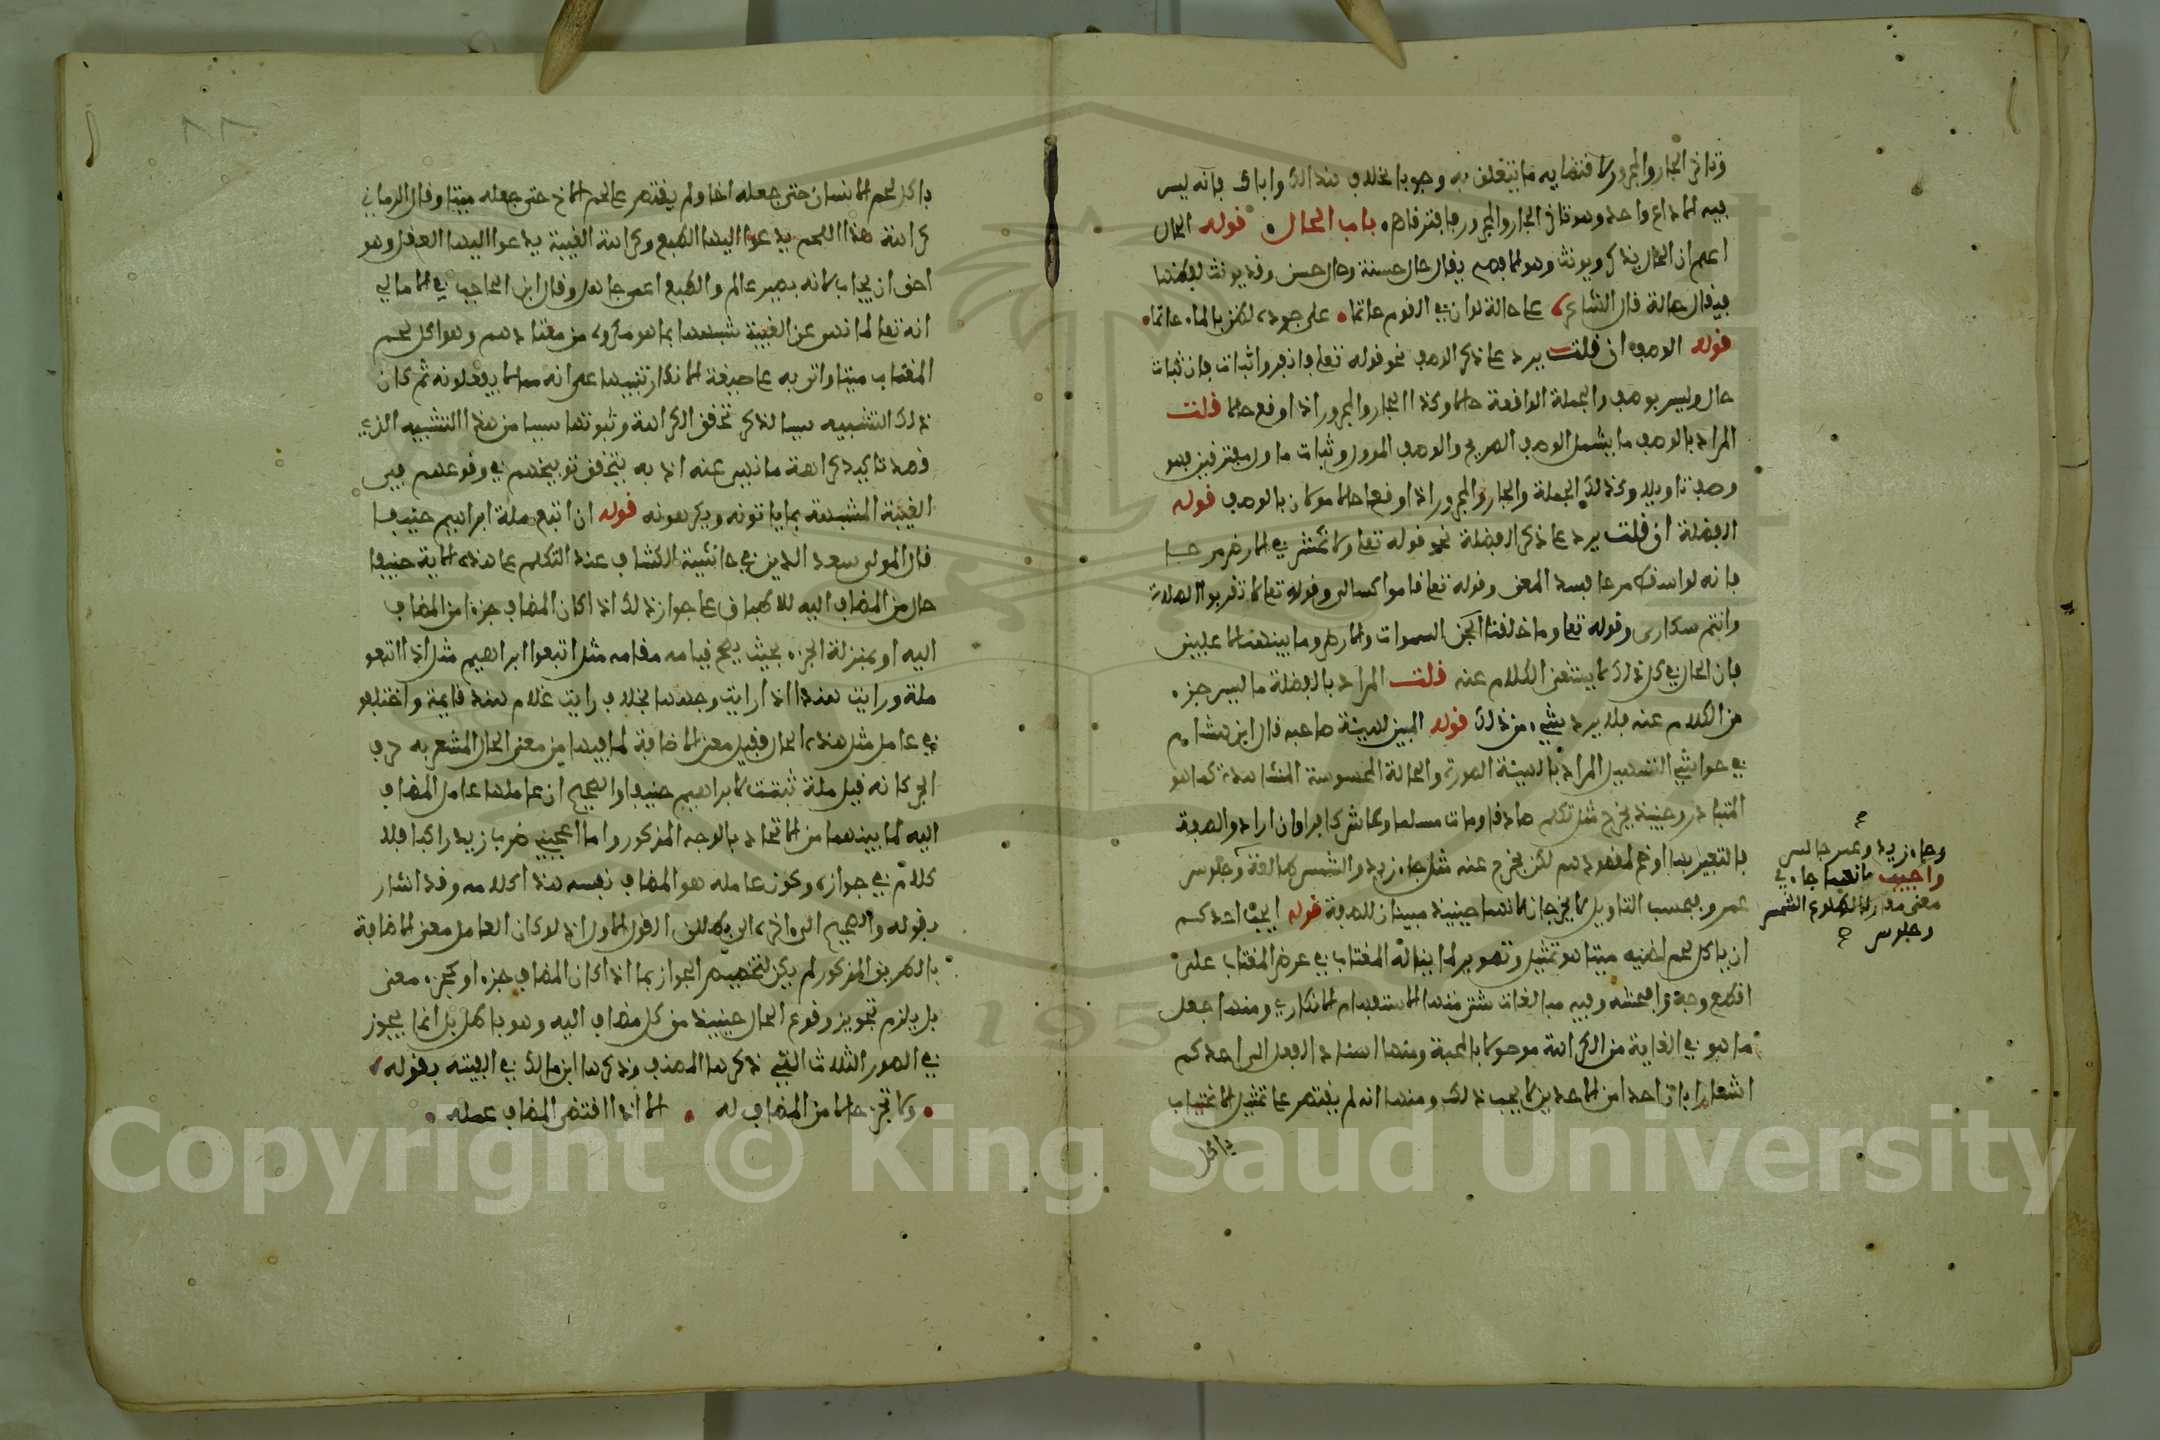 وثاني الجار والمجرور لاقتضايه ما يتعلق به وجوبا بخلاف هنالك واباك فانه ليس
فيه الا داع واحد وهو ثاني الجار والمجرور فافترفاهم باب الحال قوله الحال
اعلم ان الحال يذكر ويونث وهو الافصح يقال حال حسنة وحال حسن وقد يونث لفظها
فيقال حالة قال الشاعر على حالة لو ان في القوم حاتما على جوده لضن بالماء حاتما
قوله الوصف ان قلت يرد على ذكر الوصف نحو قوله تعلى فانفروا ثبات فان ثبات
حال وليس بوصف والجملة الواقعة حالا وكذا الجار والمجرور اذا وقع حالا قلت
المراد بالوصف ما يشمل الوصف الصريح والوصف الموول وثبات ماول بمفترقين فهو
وصف تاويلا وكذلك الجملة والجار والمجرور اذا وقعا حالا موولان بالوصف قوله
الفضلة ان قلت يرد على ذكر الفضلة نحو قوله تعلى ولا تمش في الارض مرحا
فانه لو اسقط مرحا فسد المعنى وقوله تعلى قاموا كسالى وقوله تعلى لا تقربوا الصلاة
وانتم سكارى وقوله تعلى وما خلقنا السموات والارض وما بينهما لاعبين
فان الحال في كل ذلك لا يستغنى الكلام عنه قلت المراد بالفضلة ما ليس جزء
من الكلام عنه فلا يرد شيء من ذلك قوله المبين لهيئة صاحبه قال ابن هشام
في حواشي التسهيل المراد بالهيئة الصورة والحالة المحسوسة المشاهدة كما هو
المتبادر وحينئذ يخرج مثل تكلم صادقا ومات مسلما وعاش كافرا وان اراد والصفة
فالتعبير بها اوضح لمقصودهم لكن يخرج عنه مثل جاء زيد والشمس طالعة وجلوس
عمرو وبحسب التاويل لا يخرجان لانهما حينئذ مبينان للصفة قوله ايحب احدكم
ان ياكل لحم اخيه ميتا هو تمثيل وتصوير لما يناله المغتاب في عرض المغتاب على
افظع وجه وافحشه وفيه مبالغات شتى منها الاستفهام الانكاري ومنها جعل
ما هو في الغاية من الكراهة موصولا بالمحبة ومنها اسناد الفعل الى احدكم
اشعارا بان احدا من الاحدين لا يحب ذلك ومنها انه لم يقتصر على تمثيل الاغتياب
باكل
وجاء زيد وعمر جالس
واجيب بانهما جاء في
معنى مقارنا لطلوع الشمس
وجلوس
باكل لحم الانسان حتى جعله اخا ولم يقتصر على لحم الاخ حتى جعله ميتا وقال الرماني
كراهة هذا اللحم يدعوا اليها الطبع وكراهة الغيبة يدعوا اليها العقل وهو
احق ان يجاب لانه بصير عالم والطبع اعمى جاهل وقال ابن الحاجب في الامالي
انه تعلى لما نهى عن الغيبة شبهها بما هو مكروه من معتادهم وهو اكل لحم
المغتاب ميتا واتى به على صيغة الانكار تنبيها على انه مما لا يفعلونه ثم كان
ذلك التشبيه سببا لذكر تحقق الكراهة وثبوتها سببا من هذا التشبيه الذي
قصد تاكيد كراهة ما نهى عنه اذ به يتحقق توبيخهم في وقوعهم في
الغيبة المشبهة بما ياتونه ويكرهونه قوله ان اتبع ملة ابراهيم حنيفا
قال المولى سعد الدين في حاشية الكشاف عند التكلم على هذه الاية حنيفا
حال من المضاف اليه للاطباق على جواز ذلك اذا كان المضاف جزءا من المضاف
اليه او بمنزلة الجزء بحيث يصح قيامه مقامه مثل اتبعوا ابراهيم مثل اذا اتبعوا
ملة ورايت هندا اذا رايت وجهها بخلاف رايت غلام هند قايمة واختلفوا
في عامل مثل هذه الحال فقيل معنى الاضافة لما فيها من معنى الحال المشعر به حرف
الجر كانه قيل ملة ثبتت لابراهيم حنيفا والصحيح ان عاملها عامل المضاف
اليه لما بينهما من الاتحاد بالوجه المذكور واما اعجبني ضرب زيد راكبا فلا
كلام في جوازه وكون عامله هو المضاف نفسه هذا كلامه وقد اشار
بقوله والصحيح الى اخره الى بطلان القول الاول اذ لو كان العامل معنى الاضافة
بالطريق المذكور لم يكن لتخصيص الجواز بما اذا كان المضاف جزءا او كجزء معنى
بل يلزم تجويز وقوع الحال حينئذ من كل مضاف اليه وهو باطل بل انما يجوز
في الصور الثلاث التي ذكرها المصنف وذكرها ابن مالك في الفيته بقوله
ولا تجز حالا من المضاف له الا اذا اقتضى المضاف عمله
Copyright © King Saud University